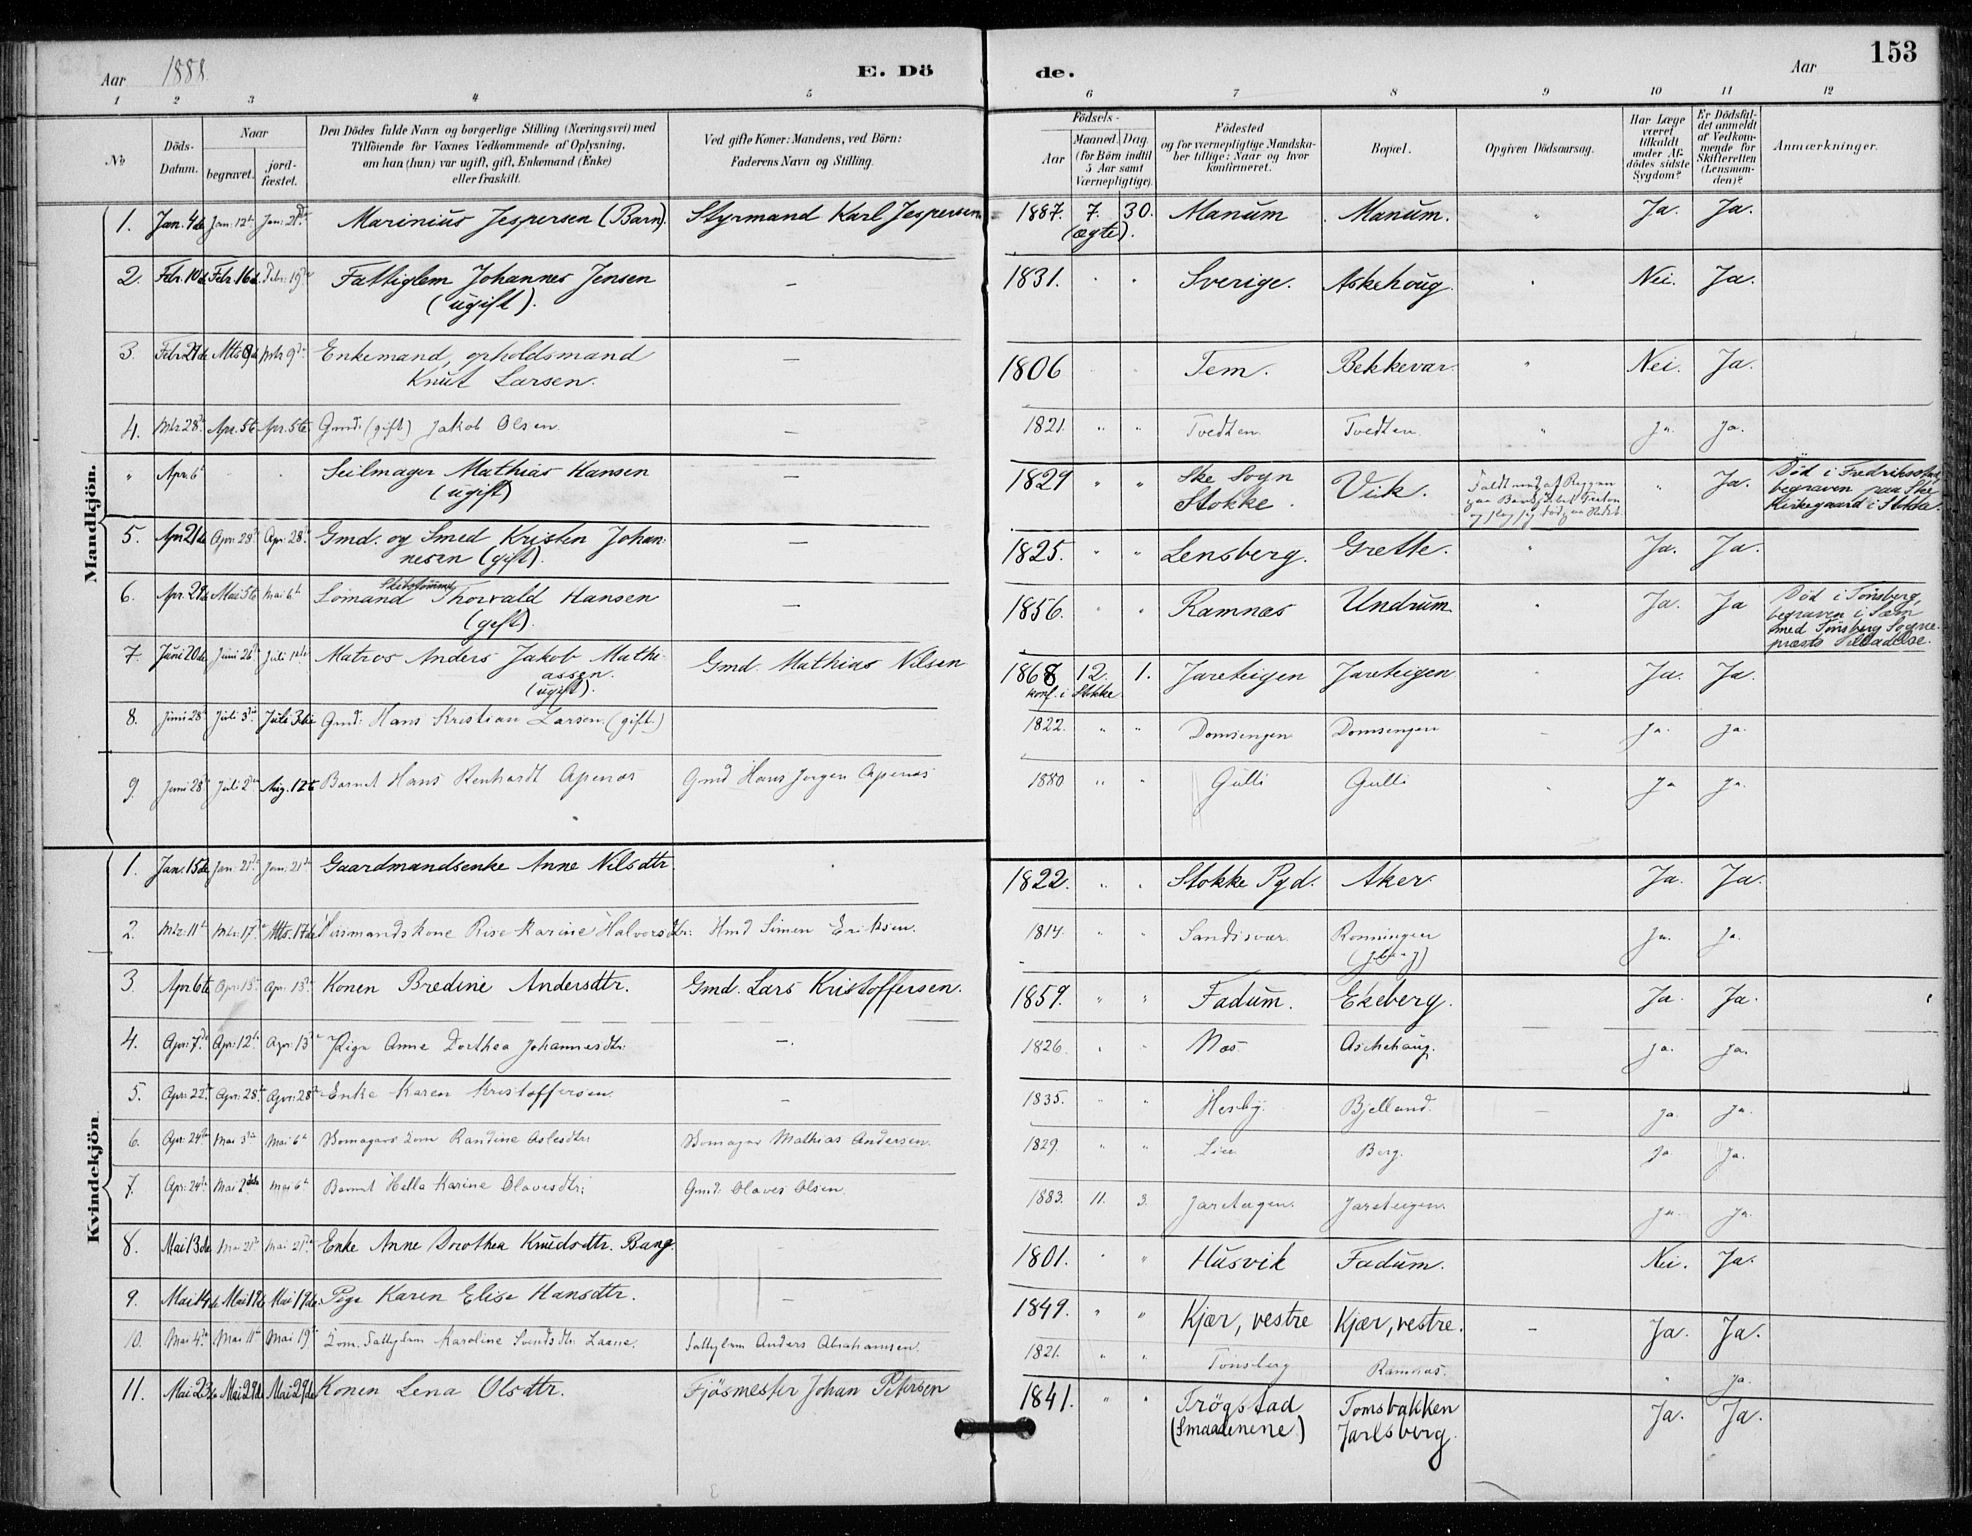 153
Aar 1888. E. Dö de. Aar
1 2 3 4 5 6 7 8 9 10 11 12
No Döds-Datum. Naar begravet. jordfæstet. Den Dödes fulde Navn og borgerlige Stilling (Næringsvei) med Tilföiende for Voxnes Vedkommende af Oplysning, om han (hun) var ugift, gift, Enkemand (Enke) eller fraskilt. Ved gifte Koner: Mandens, ved Börn: Faderens Navn og Stilling. Födsels- Aar Maaned. Dag. (for Börn indtil 5 Aar samt Værnepligtige). Födested og for værnepligtige Mandskaber tillige: Naar og hvor Konfirmeret. Bopæl. Opgiven Dödsaarsag. Har Læge været tilkaldt under Afdödes sidste Sygdom? Er Dödsfaldet anmeldt af Vedkommende for Skifteretten (Lensmanden)? Anmærkninger.
Mandkjön.
1. Jan. 4de Jan. 12te Jan. 21de Marinius Jespersen (Barn). Styrmand Karl Jespersen 1887. 7. 30. Manum Manum. " Ja. Ja.
(ægte).
2. Febr. 10de Febr. 16de Febr. 19de Fattiglem Johannes Jensen — 1831. " " Sverige. Askehoug. " Nei. Ja.
(ugift).
3. Febr. 27de Mts. 9de Mts. 9de Enkemand, opholdsmand — 1806 " " Tem. Bekkevar. " Nei. Ja.
Knut Larsen.
4. Mts. 28de Apr. 5te Apr. 5te Gmd. (gift) Jakob Olsen — 1821. " " Tvedten. Tvedten. " Ja. Ja.
" Apr. 6te " " Seilmager Mathias Hansen — 1829 " " Ske Sogn Vik. " Ja. Død i Fredrikss
(ugift) Stokke begraven paa Ske
Kirkegaard i Stokke.
5. Apr. 21de Apr. 28de Apr. 28de Gmd. og Smed Kristen Johan- — 1825. " " Lensberg. Grette. " Ja. Ja.
nesen (gift).
6. Apr. 27de Mai 5te Mai 6te Sömand Thorvald Hansen — 1856. " " Ramnæs Undrum. " Ja. Ja Død i Tönsberg,
(gift). begraven i Sæm
med Tönsberg Sogne-
præsts Tilladelse.
7. Juni 20de Juni 26de Juli 1ste Matros Anders Jakob Mathi- Gmd. Mathias Nilsen 1868 12. 1. Jareteigen Jareteigen " Ja. Ja.
assen. konf. i Stokke
(ugift).
8. Juni 28de Juli 3die Juli 3die Gmd. Hans Kristian Larsen. (gift.) 1822. " " Domsengen Domsengen — Ja. Ja.
9. Juni 28de Juli 2den Aug. 12te Barnet Hans Renhardt Apenæs Gmd Hans Jørgen Apenæs 1880 " " Gulli Gulli " Ja Ja.
Kvindekjön
1. Jan. 15de Jan. 21de Jan. 21de Gaardmandsenke Anne Nilsdtr. " 1822. " " Stokke Pgd. Aker. Ja. Ja.
2. Mts. 11te Mts. 17de Mts. 17de Husmandskone Rise Karine Halvorsdtr. Hmd Simen Eriksen. 1814. " " Sandsvær. Rønningen Ja. Ja.
3. Apr. 6te Apr. 13de Apr. 13de Konen Bredine Andersdtr. Gmd. Lars Kristoffersen. 1859. " " Fadum. Ekeberg. Ja. Ja.
4. Apr. 7de Apr. 12te Apr. 13de Pige Anne Dorthea Johannesdtr. —. 1826. " " Næs. Aschehaug. — Ja. Ja.
5. Apr. 22de Apr. 28de Apr. 28de Enke Karen Kristoffersen. — 1835. " " Hesby. Bjelland. — Ja. Ja.
6. Apr. 24de Mai 3die Mai 6te Randine Aslesdtr. Mathias Andersen. 1829. " " Lien Berg. Ja Ja.
7. Apr. 24de Mai 2den Mai 6te Barnet Hella Karine Olavesdtr. Gmd. Olaves Olsen. 1883. 11. 3. Jareteigen. Jareteigen. Ja. Ja.
8. Mai 13de Mai 21de Mai 21de Enke Anne Dorothea Knudsdtr. Bang. — 1801. " " Husvik Fadum. Nei. Ja.
9. Mai 14de Mai 19de Mai 19de Pige Karen Elise Hansdtr. — 1849. " " Kjær, vestre Kjær, vestre. — Ja. Ja.
10. Mai 4de Mai 11te Mai 19de Karoline Svendsdtr. Laane. Anders Abrahamsen. 1821. " " Tönsberg Ramnæs. " Ja.
11. Mai 23de Mai 29de Mai 29de Konen Lena Olsdtr. Fjösmester Johan Petersen 1841. " " Trögstad Tomsbakken Ja. Ja.
(Smaalenene) Jarlsberg.